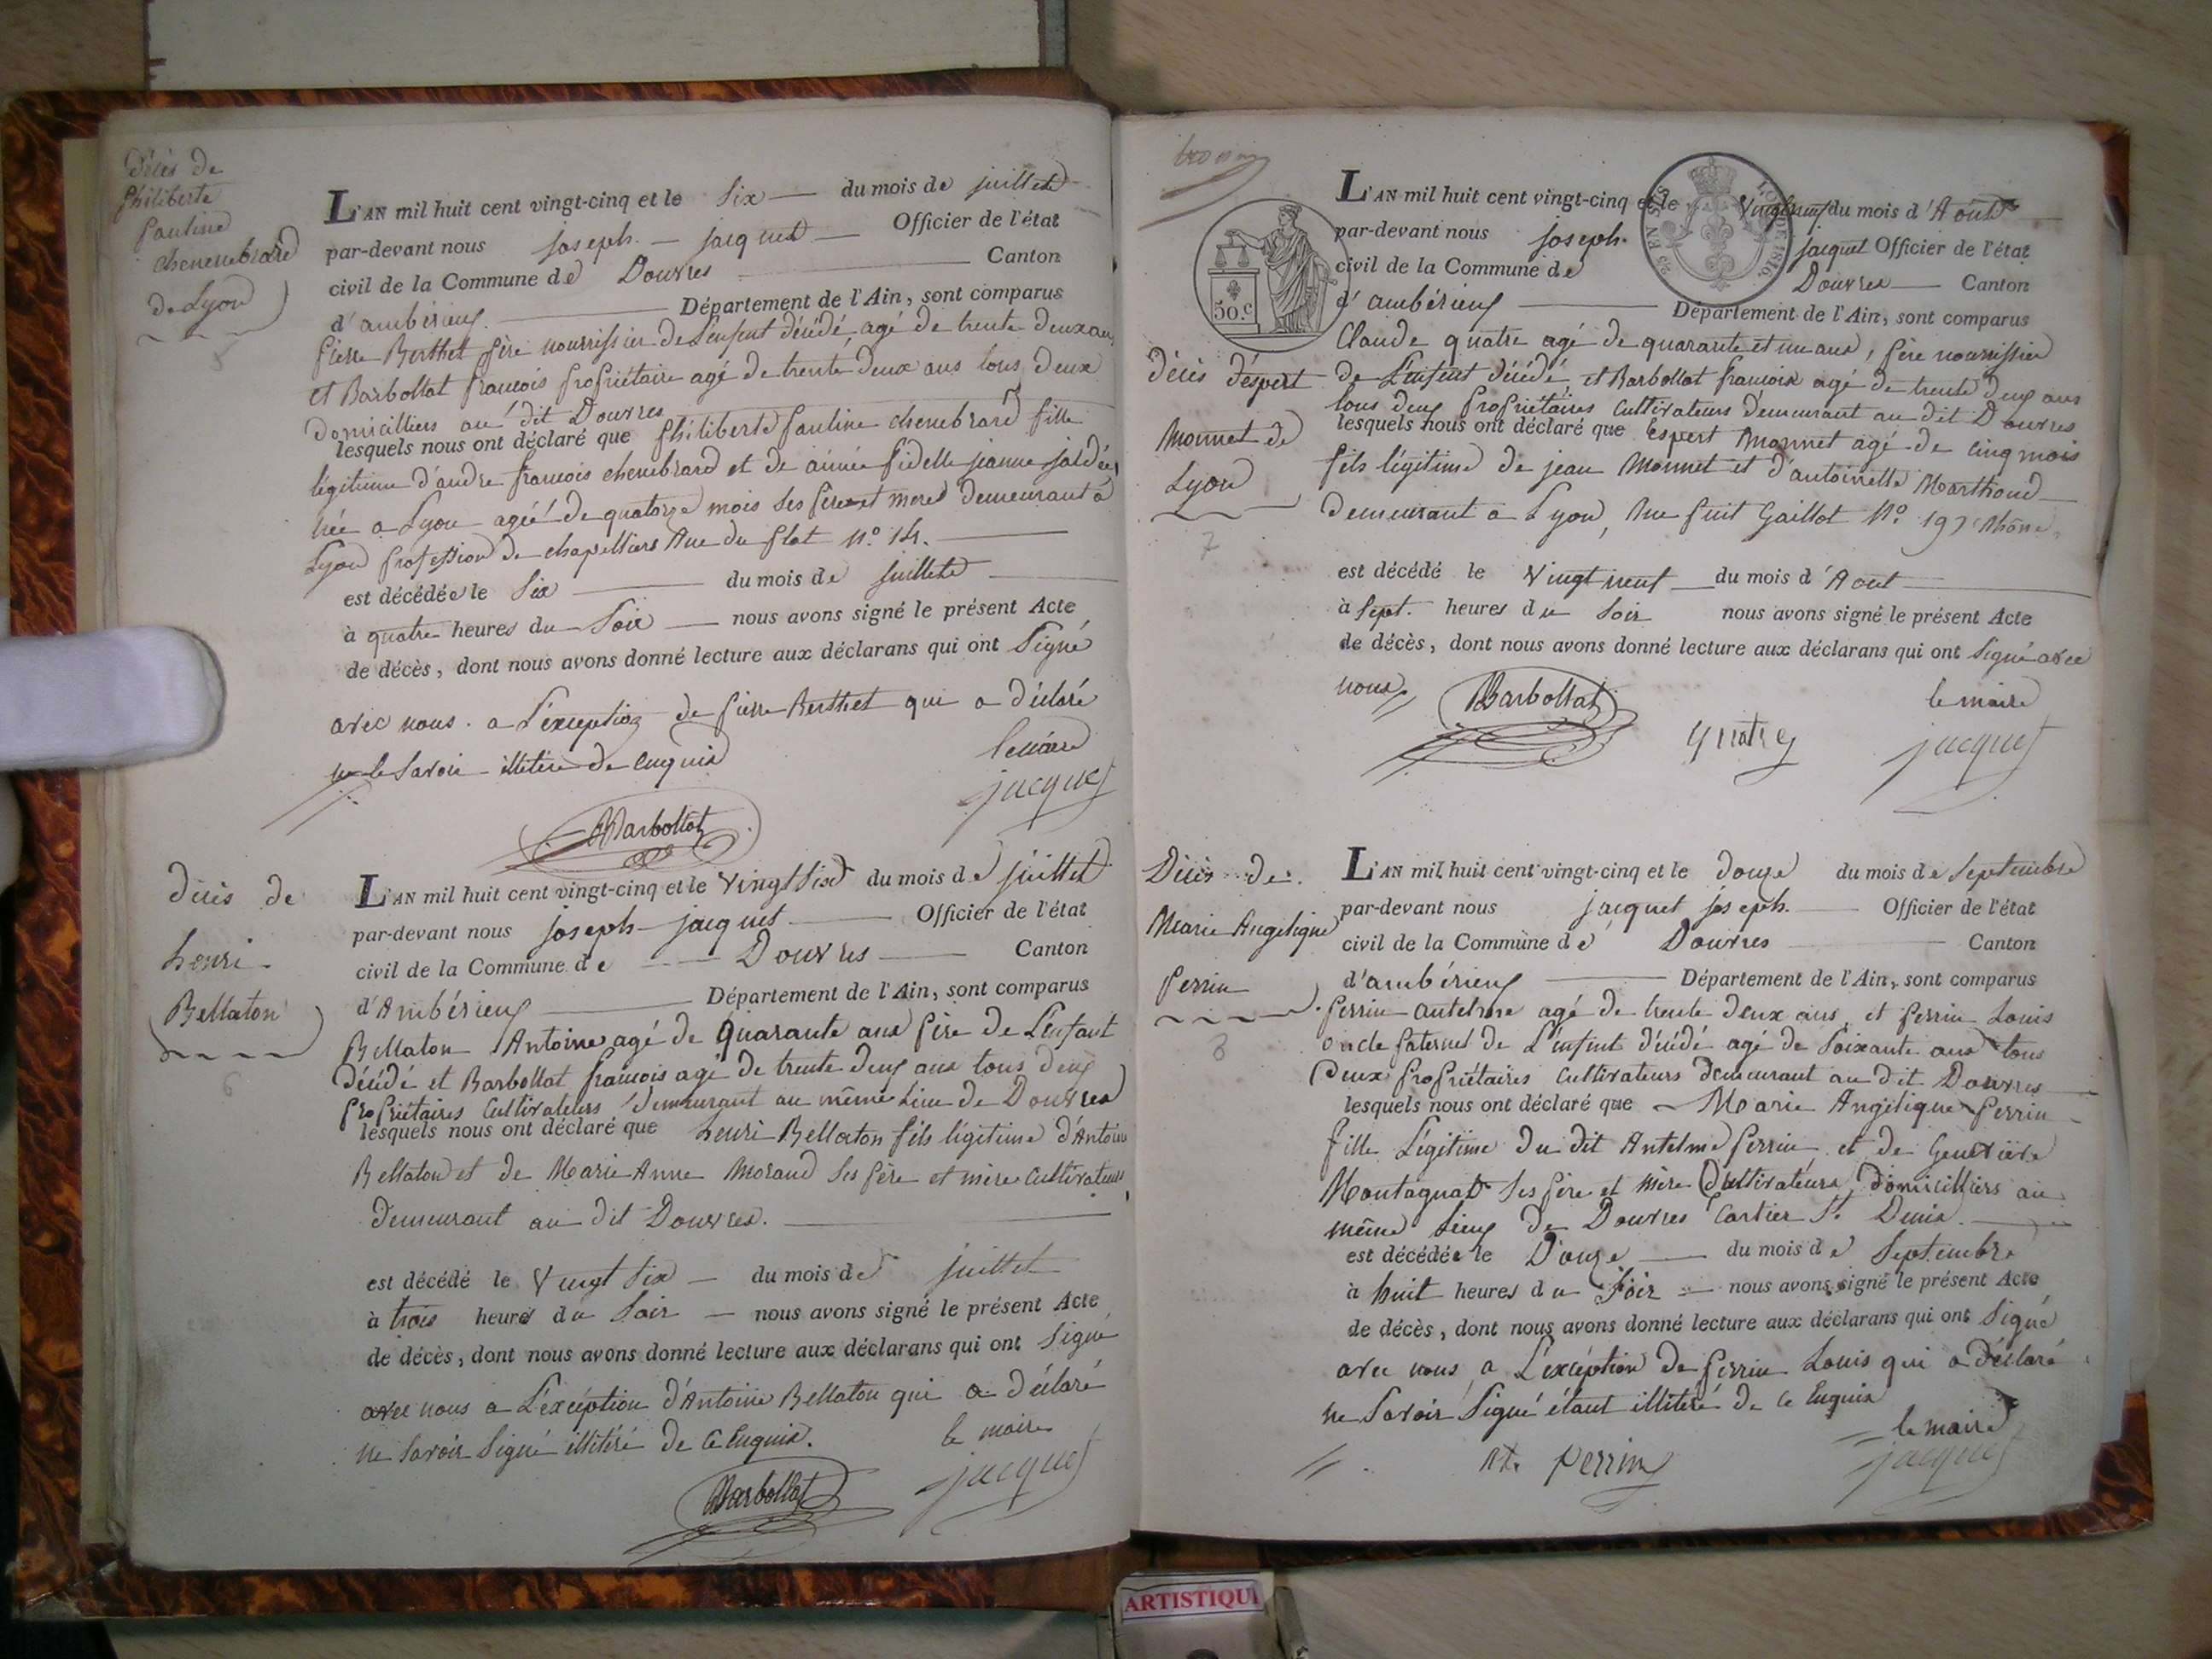 Décès de
Philiberte
Pauline
chenenbrard
de Lyon
5
L'AN mil huit cent vingt-cinq et le Six du mois de juillet
par-devant nous joseph jacquet Officier de l'état
civil de la Commune de Douvres Canton
d'ambérieux Département de l'Ain, sont comparus
pierre Berthet père nourrissier de L'enfent décédé, agé de trente deux ans
et Barbollat francois propriétaire agé de trente deux ans tous deux
domicilliers au dit Douvres
lesquels nous ont déclaré que philiberte pauline chenebrard fille
légitime d'andre francois chenebrard et de aimée fidelle jeanne
née a Lyon agéé de quatorze mois ses père et mere demeurant à
Lyon profession de chapelliers Rue du plat N.º 14.
est décédée le Six du mois de juillet
à quatre heures du Soir nous avons signé le présent Acte
de décès, dont nous avons donné lecture aux déclarans qui ont Signé
avec nous. a L'exception de pierre Berthet qui a déclaré
ne le Savoir illitéré de enquis
le maire
jacquet
Barbollat
décès de
henri
Bellaton
6
L'AN mil huit cent vingt-cinq et le Vingt Six du mois de juillet
par-devant nous joseph jacquet Officier de l'état
civil de la Commune de Douvres Canton
d'Ambérieux Département de l'Ain, sont comparus
Bellaton Antoine agé de Quarante ans père de L'enfant
décédé et Barbollat francois agé de trente deux ans tous deux
propriétaires Cultivateurs demeurant au même Lieu de Douvres
lesquels nous ont déclaré que henri Bellaton fils légitime d'Antoine
Bellaton et de Marie Anne Morand ses père et mère Cultivateurs
demeurant au dit Douvres.
est décédé le Vingt Six du mois de juillet
à trois heures du Soir nous avons signé le présent Acte
de décès, dont nous avons donné lecture aux déclarans qui ont Signé
avec nous a L'exception d'Antoine Bellaton qui a déclaré
ne Savoir Signé illitéré de Ce Enquis.
le maire
Barbollat
jacquet
L'AN mil huit cent vingt-cinq et le Vingt neuf du mois d'Août
par-devant nous joseph jacquet Officier de l'état
civil de la Commune de Douvres Canton
d'ambérieux Département de l'Ain, sont comparus
50.C
25 EN SUS
LOI DE 1816.
Décès d'espert
Monnet de
Lyon
7
Claude quatre agé de quarante et un ans, père nourrissier
de L'enfent décédé et Barbollat francois agé de trente deux ans
tous deux propriétaires Cultivateurs demeurant au dit Douvres
lesquels nous ont déclaré que Espert Monnet agé de cinq mois
fils légitime de jean Monnet et d'antoinette Marthoud
demeurant a Lyon, Rue puit Gaillot Nº. 19, Rhône.
est décédé le Vingt neuf du mois d'Aout
à Sept. heures du Soir nous avons signé le présent Acte
de décès, dont nous avons donné lecture aux déclarans qui ont Signé avec
nous
le maire
Barbollat
quatre
jacquet
Décès de
Marie Angelique
Perrin
8
L'AN mil huit cent vingt-cinq et le douze du mois de Septembre
par-devant nous jacquet joseph. Officier de l'état
civil de la Commune de Douvres Canton
d'ambérieux Département de l'Ain, sont comparus
perrin antelme agé de trente deux ans et perrin Louis
oncle paternel de L'enfent décédé agé de Soixante ans tous
deux propriétaires Cultivateurs demeurant au dit Douvres
lesquels nous ont déclaré que Marie Angélique Perrin
fille Légitime du dit Antelme perrin et de Genevieve
Montagnat ses père et mère Cultivateurs domicilliers au
même Lieux de Douvres Cartier St. Denis.
est décédée le Douze du mois de Septembre
à huit heures du Soir nous avons signé le présent Acte
de décès, dont nous avons donné lecture aux déclarans qui ont Signé
avec nous a L'exception de perrin Louis qui a déclaré
ne Savoir Signé étant illitéré de Ce Enquis
le maire
perrin
jacquet
ARTISTIQU